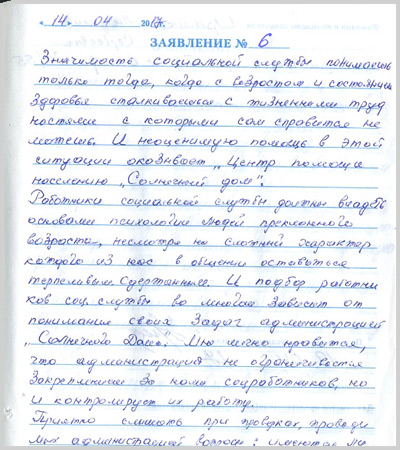 « 14 » 04 2017г.
ЗАЯВЛЕНИЕ № 6
Значимость социальной службы понимаешь
только тогда, когда с возрастом и состоянием
здоровья сталкиваешься с жизненными труд
ностями с которыми сам справится не
можешь. И неоценимую помощь в этой
ситуации оказывает „Центр помощи
населению „Солнечный дом".
Работники социальной службы должны владеть
основами психологии людей преклонного
возраста, несмотря на сложный характер
каждого из нас в общении оставаться
терпеливым сдержанным. И подбор работни
ков соц. службы во многом зависит от
понимания своих задач администрацией
„Солнечного Дома". Мне лично нравится,
что администрация не ограничивается
закреплением за нами соцработников, но
и контролирует их работу.
Приятно слышать при проверках, проводи
мых администрацией вопросы: имеются ли